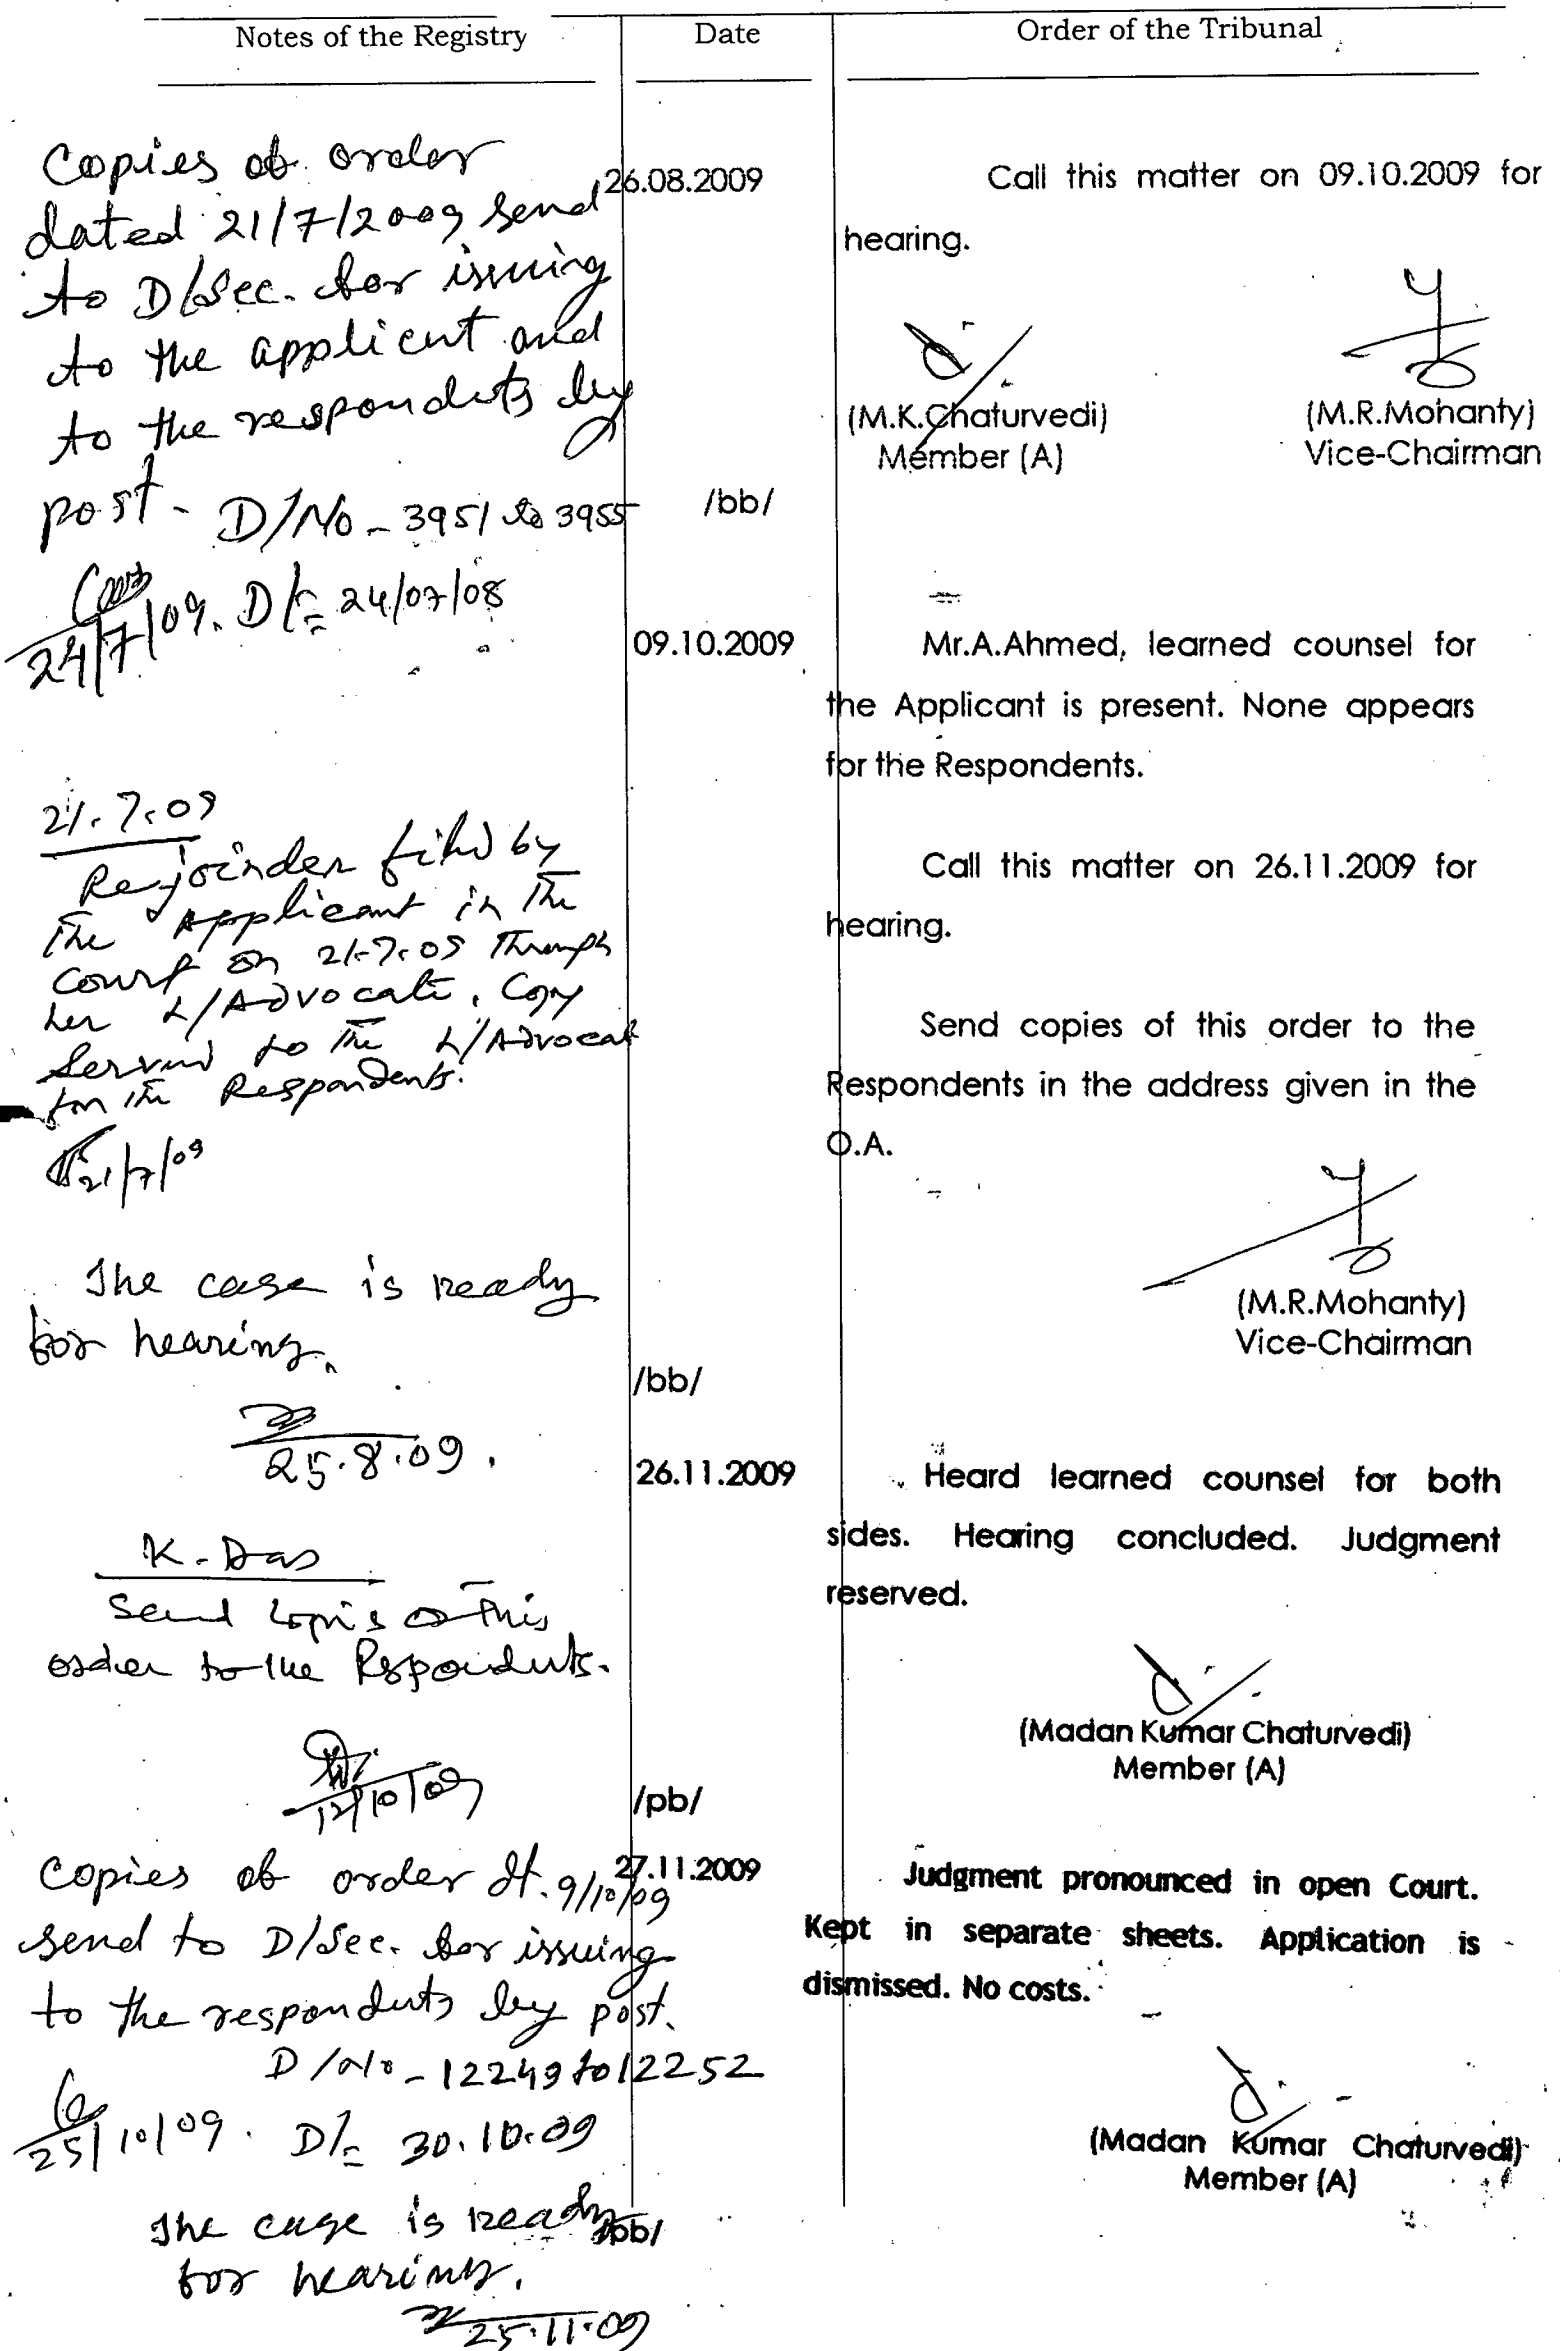 Notes of the Registry
Date
Order of the Tribunal
Copies of order
dated 21/7/2009 send
to D/Sec. for issuing
to the applicent and
to the respondents by
post - D/No - 3951 to 3955
24/7/09. D/= 24/07/08
21.7.09
Rejoinder filed by
the Applicant in the
Court on 21.7.09 through
her L/Advocate, Copy
served to the L/Advocate
for the Respondents.
21/7/09
The case is ready
for hearing.
25.8.09.
K. Das
Send copies of this
order to the Respondents.
12/10/09
Copies of order dt. 9/10/09
send to D/Sec. for issuing
to the respondents by post.
D/No - 12249 to 12252
25/10/09. D/= 30.10.09
The case is ready
for hearing.
25.11.09
26.08.2009
Call this matter on 09.10.2009 for
hearing.
(M.K.Chaturvedi)
Member (A)
(M.R.Mohanty)
Vice-Chairman
/bb/
09.10.2009
Mr.A.Ahmed, learned counsel for
the Applicant is present. None appears
for the Respondents.
Call this matter on 26.11.2009 for
hearing.
Send copies of this order to the
Respondents in the address given in the
O.A.
(M.R.Mohanty)
Vice-Chairman
/bb/
26.11.2009
Heard learned counsel for both
sides. Hearing concluded. Judgment
reserved.
(Madan Kumar Chaturvedi)
Member (A)
/pb/
27.11.2009
Judgment pronounced in open Court.
Kept in separate sheets. Application is
dismissed. No costs.
(Madan Kumar Chaturvedi)
Member (A)
/bb/